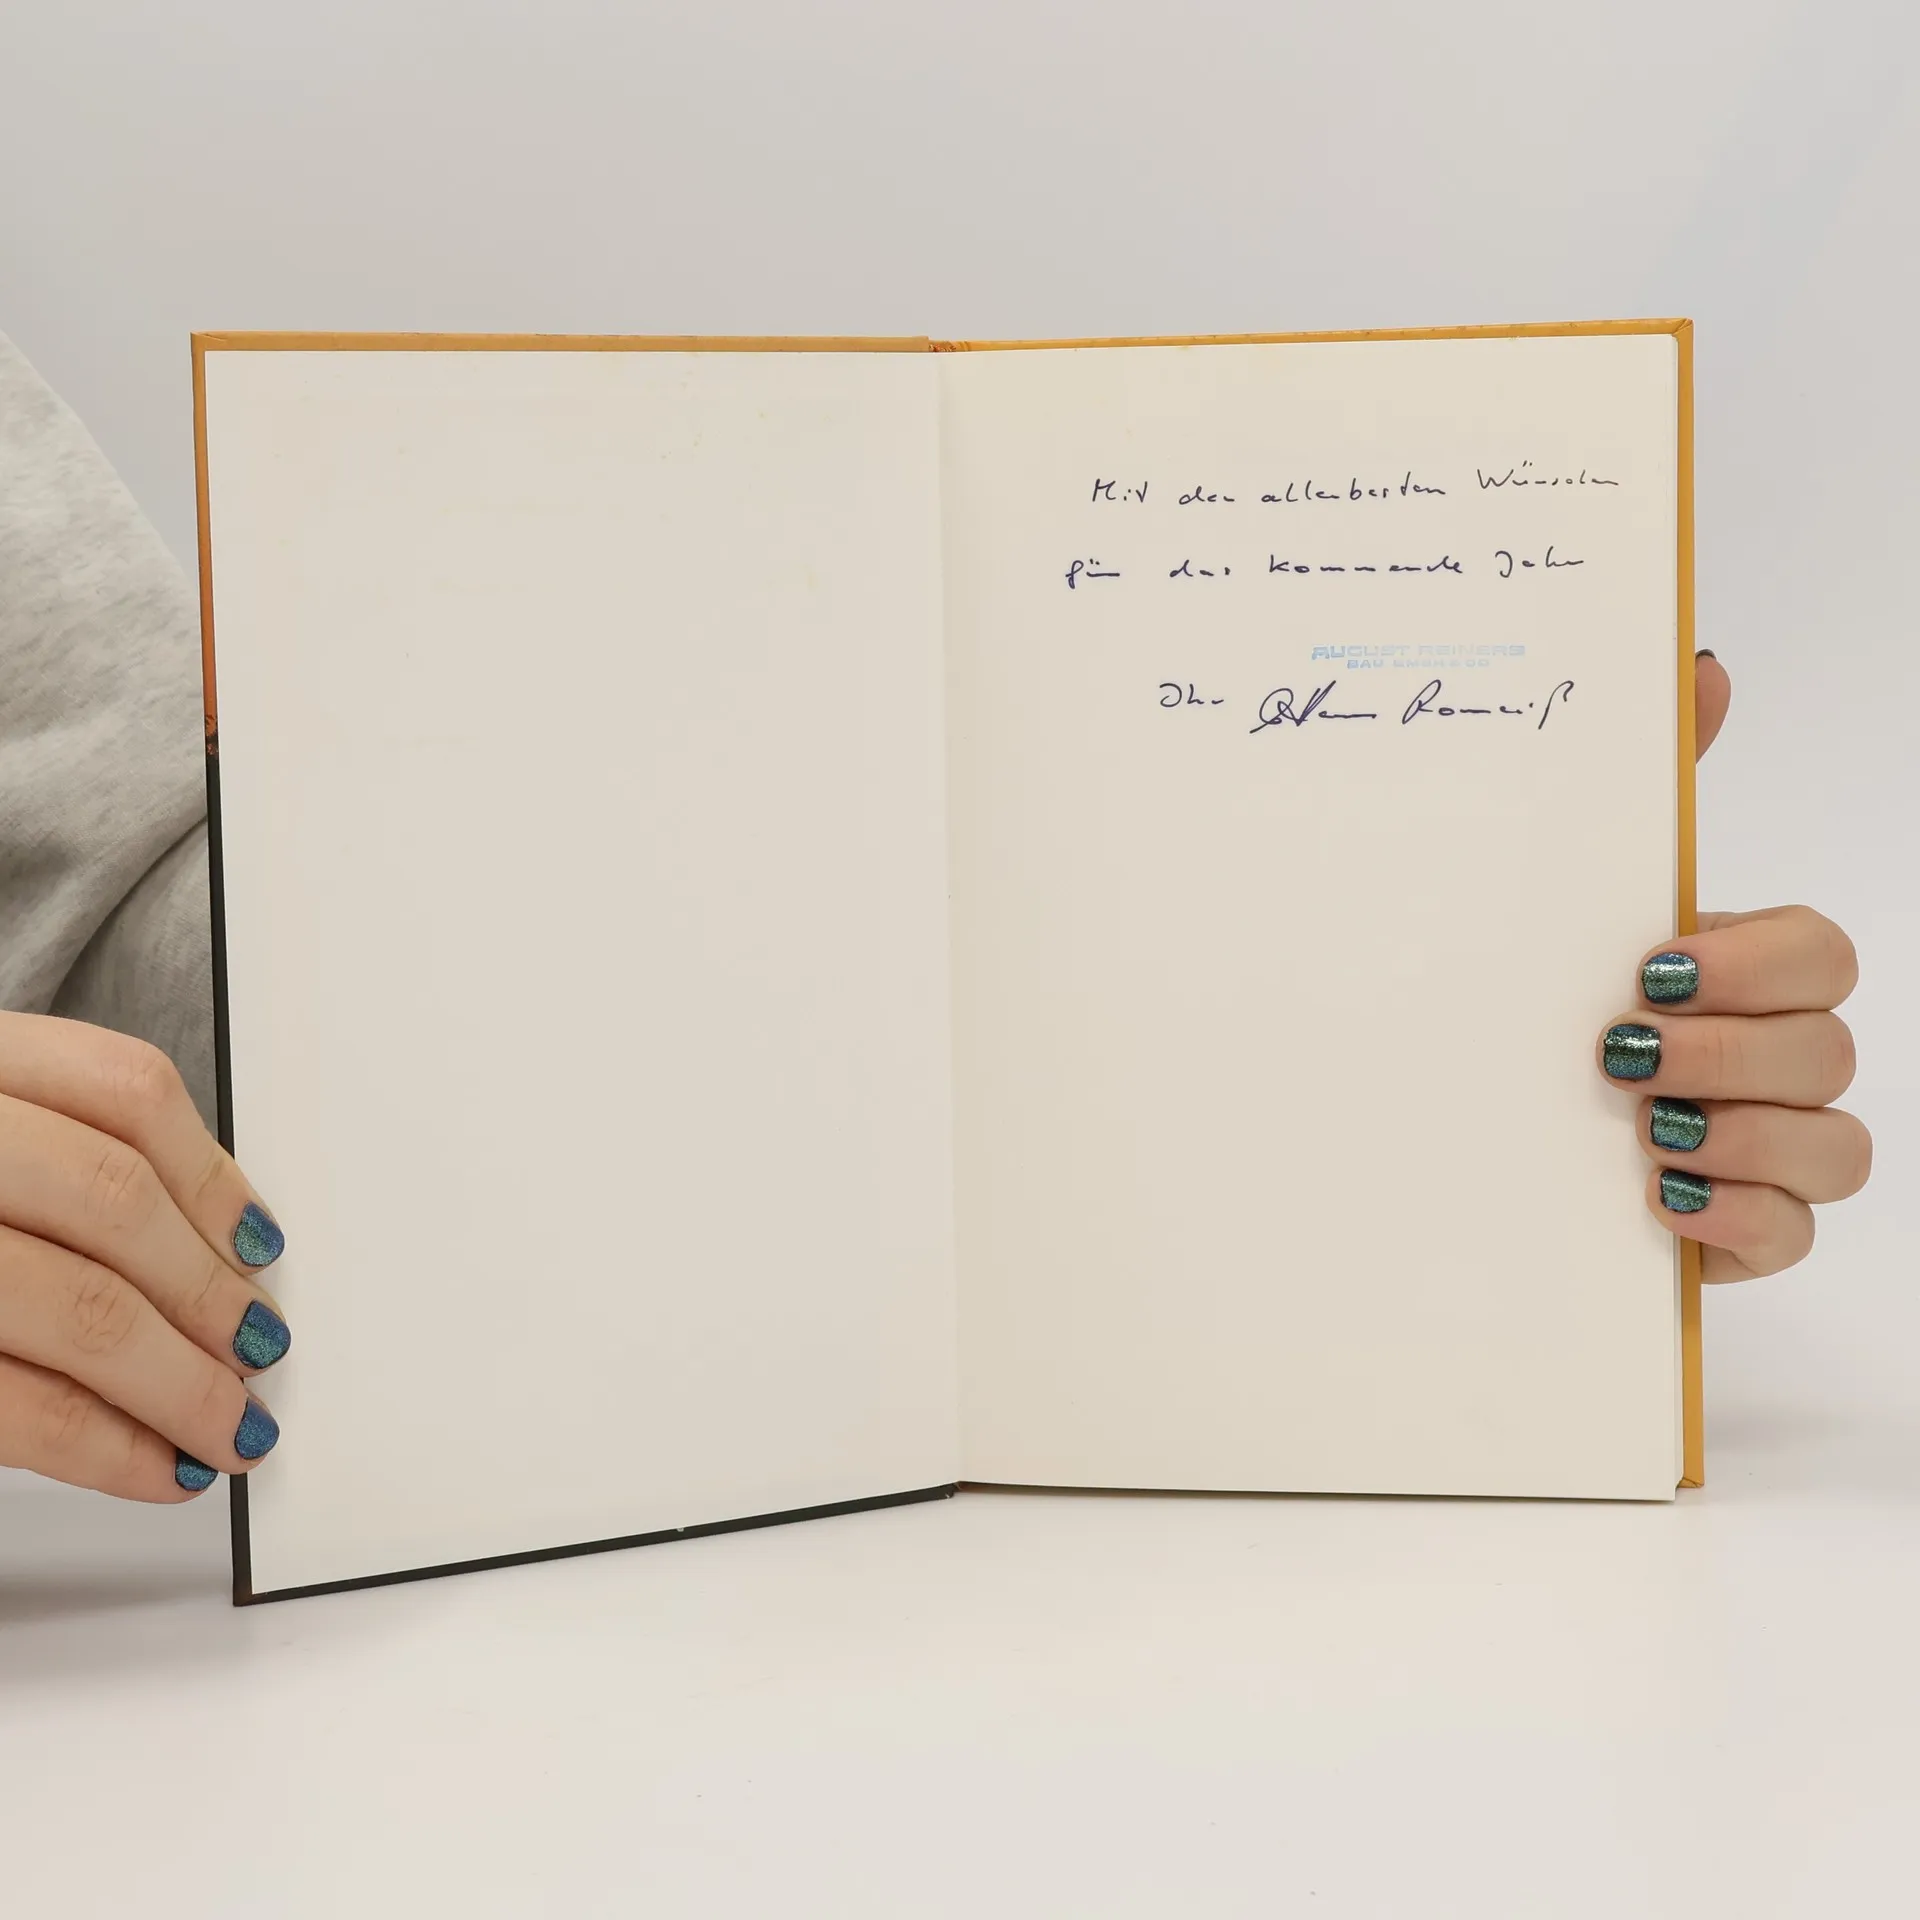 Mit den allerbesten Wünschen
für das kommende Jahr
AUGUST REINERS
BAU GMBH & CO
Ihr